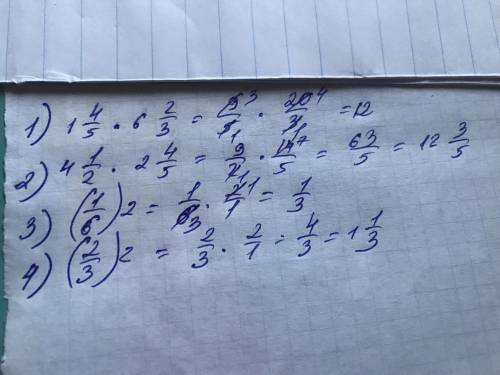 1) 1 4/5 · 6 2/3 = 9³/5₁ · 20⁴/3₁ = 12
2) 4 1/2 · 2 4/5 = 9/2₁ · 14⁷/5 = 63/5 = 12 3/5
3) (1/6) 2 = 1/6₃ · 2¹/1 = 1/3
4) (2/3) 2 = 2/3 · 2/1 = 4/3 = 1 1/3